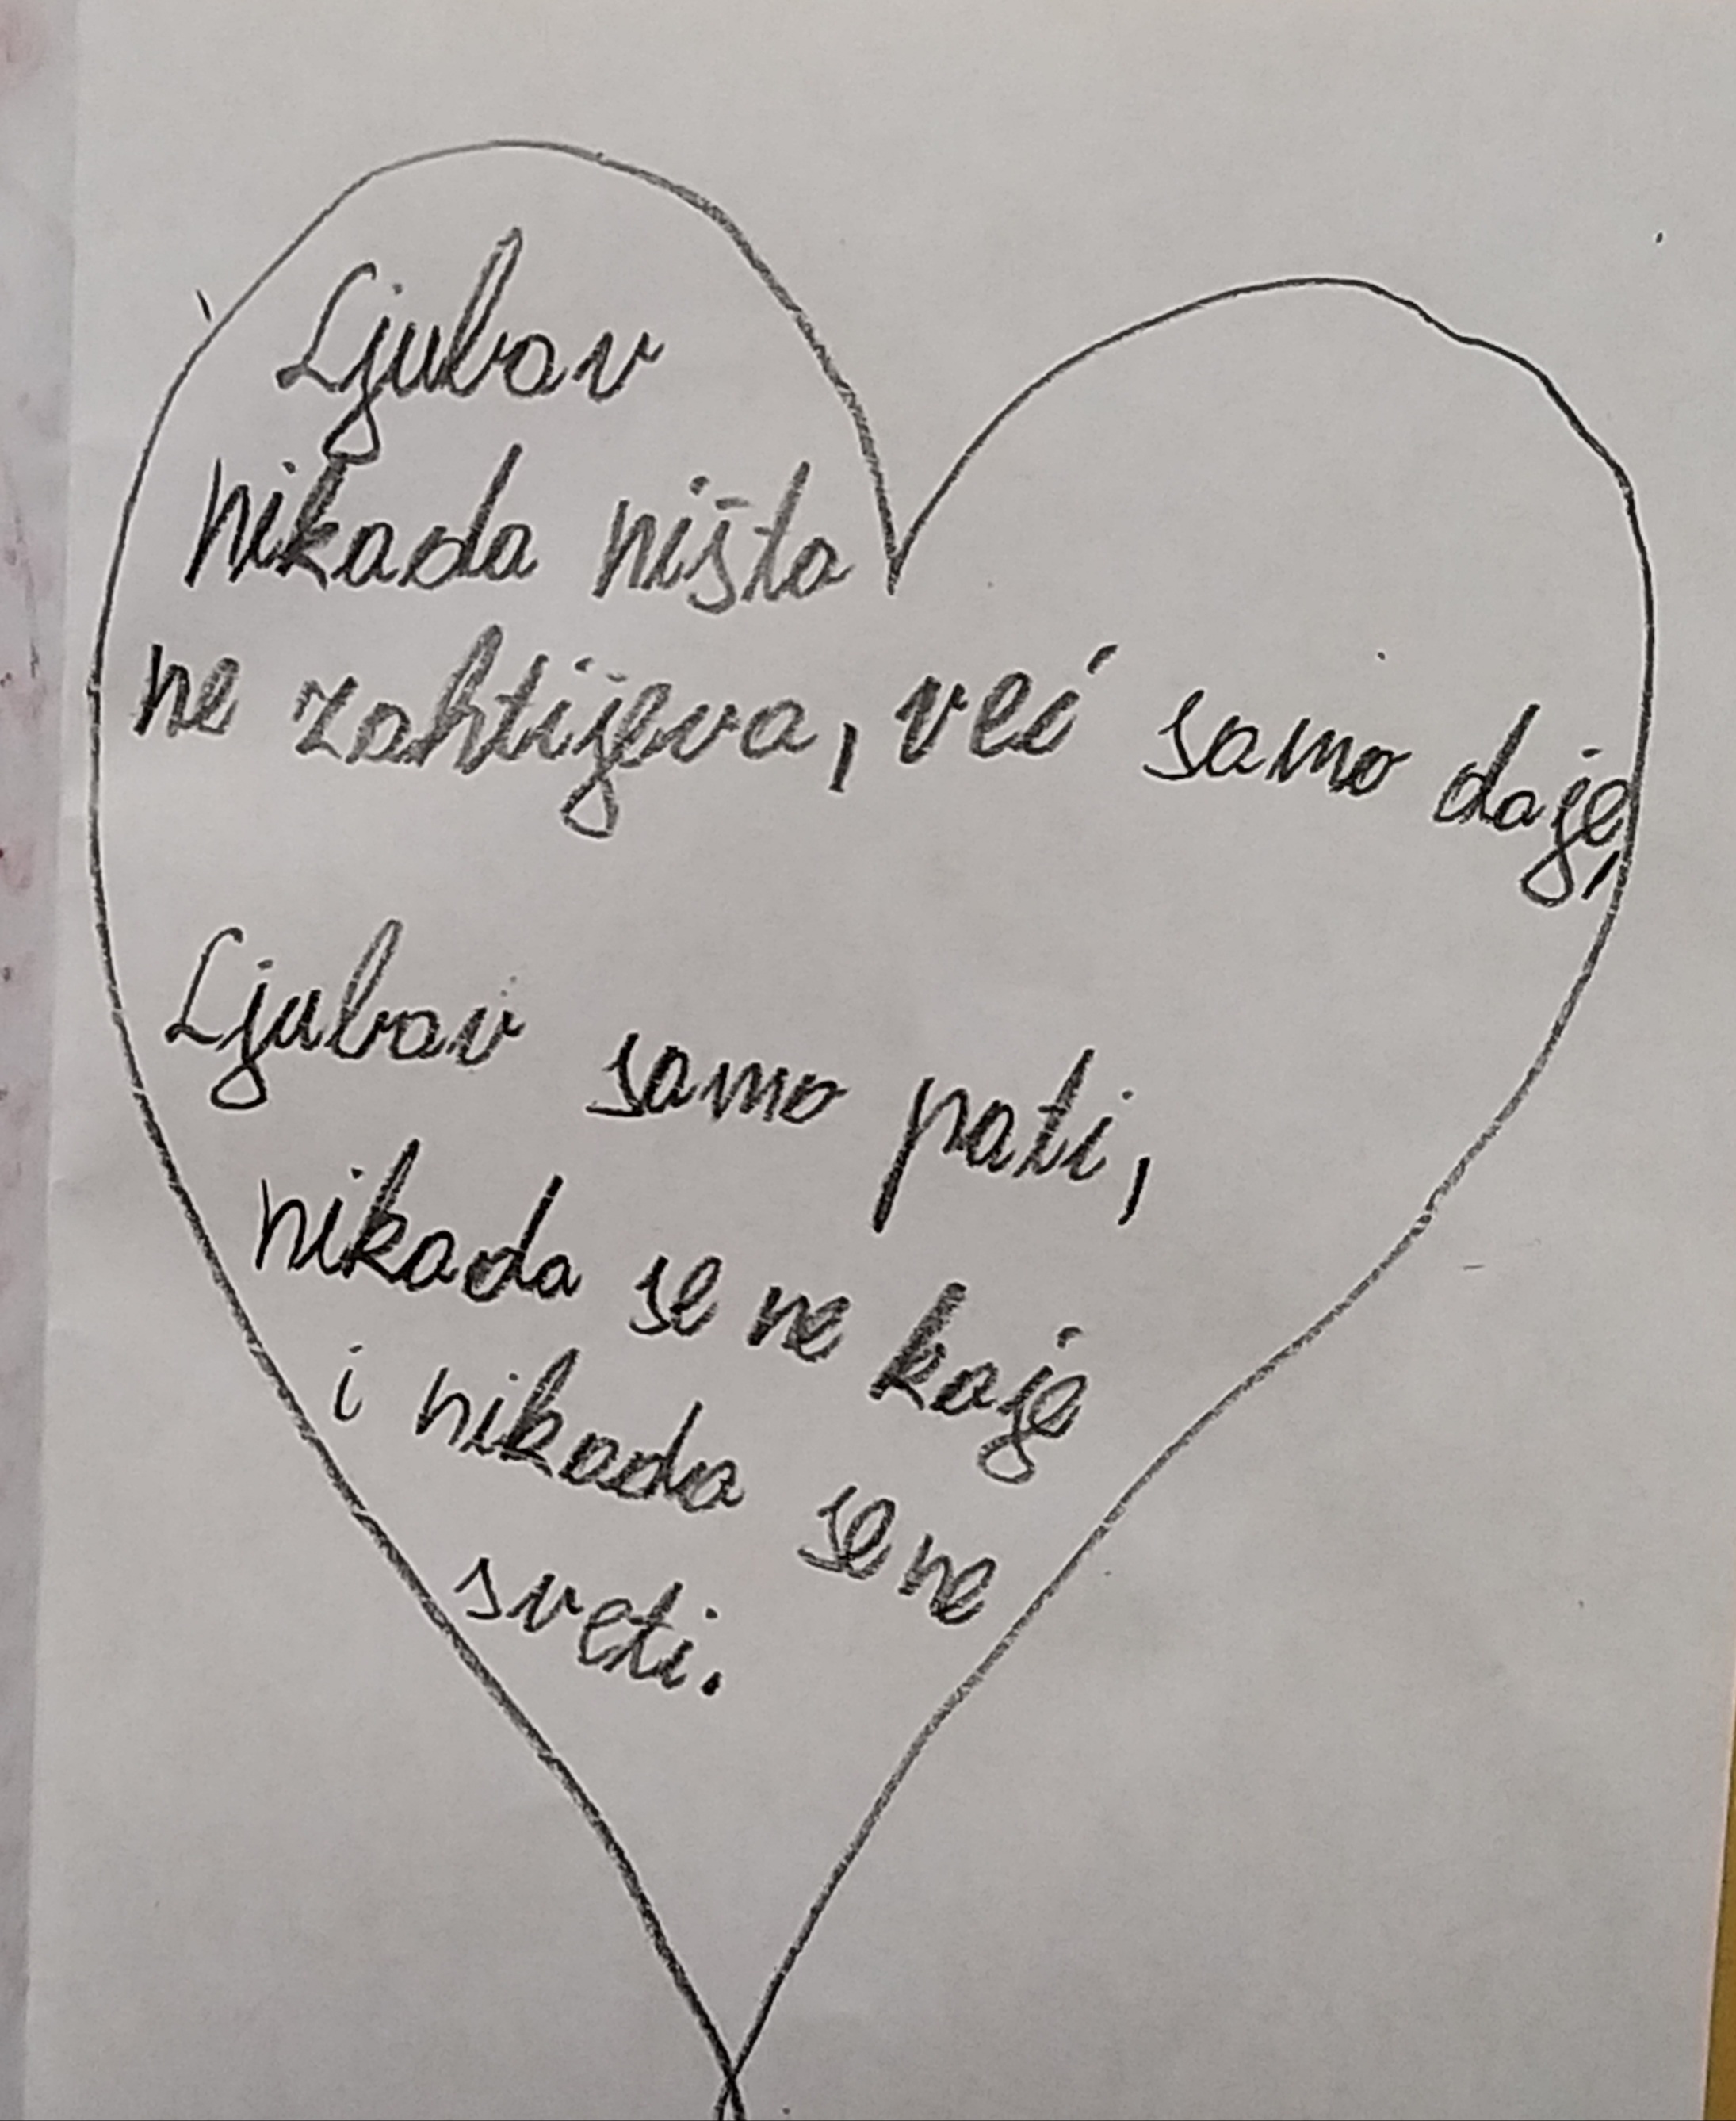 Ljubav
nikada ništa
ne zahtijeva, već samo daje,
Ljubav samo pati,
nikada se ne kaje
i nikada se ne
sveti.